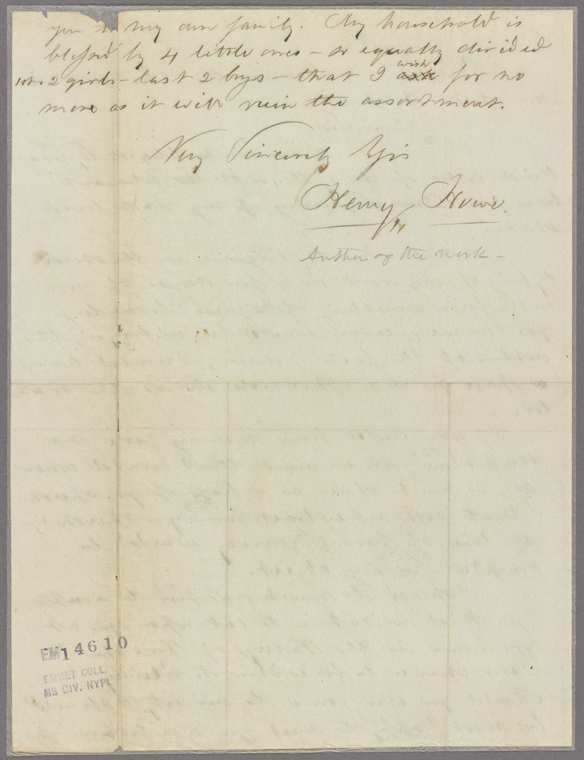 you to my own family. My household is
blessed by 4 little ones – so equally divided
1st 2 girls – last 2 boys – that I wish ask for no
more as it will ruin the assortment.
Very Sincerely Yrs
Henry Howe.
Author of the work –
EM14610
EMMET COLL.
MS DIV. NYPL